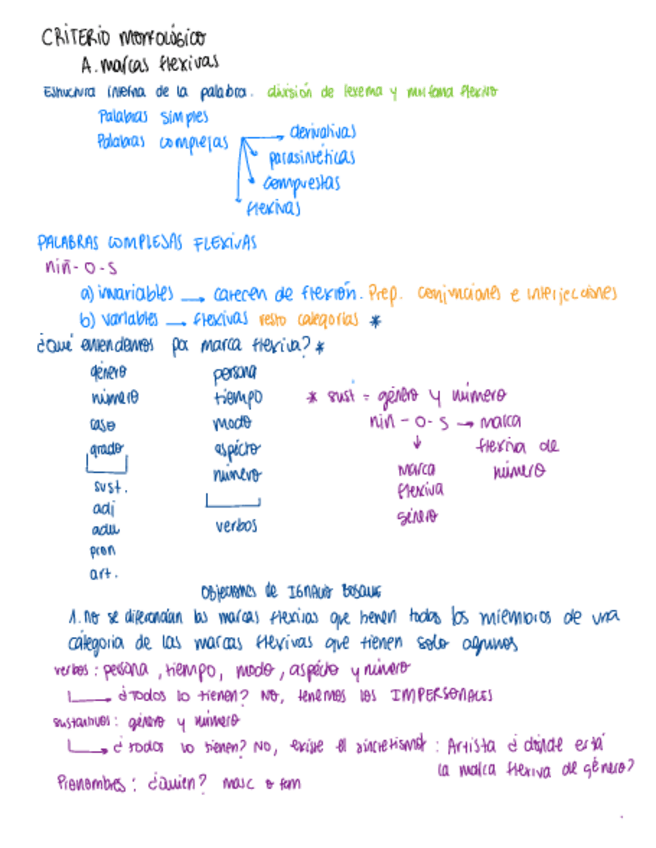 CRITERIO MORFOLÓGICO
A. marcas flexivas
Estructura interna de la palabra. división de lexema y morfema flexivo
Palabras simples
Palabras complejas → derivativas
parasintéticas
compuestas
flexivas
PALABRAS COMPLEJAS FLEXIVAS
niñ-o-s
a) invariables → carecen de flexión. Prep. conjunciones e interjecciones
b) variables → flexivas resto categorías *
¿Qué entendemos por marca flexiva? *
género
número
caso
grado
sust.
adj
adv
pron
art.
persona
tiempo
modo
aspecto
número
verbos
* sust = género y número
niñ - o - s → marca flexiva de número
↓
marca
flexiva
género
Objeciones de IGNACIO BOSQUE
1. no se diferencian las marcas flexivas que tienen todos los miembros de una
categoría de las marcas flexivas que tienen solo algunos
verbos: persona, tiempo, modo, aspecto y número
→ ¿Todos lo tienen? NO, tenemos los IMPERSONALES
sustantivos: género y número
→ ¿todos lo tienen? NO, existe el sincretismo: Artista ¿dónde está
la marca flexiva de género?
Pronombres: ¿quien? masc o fem